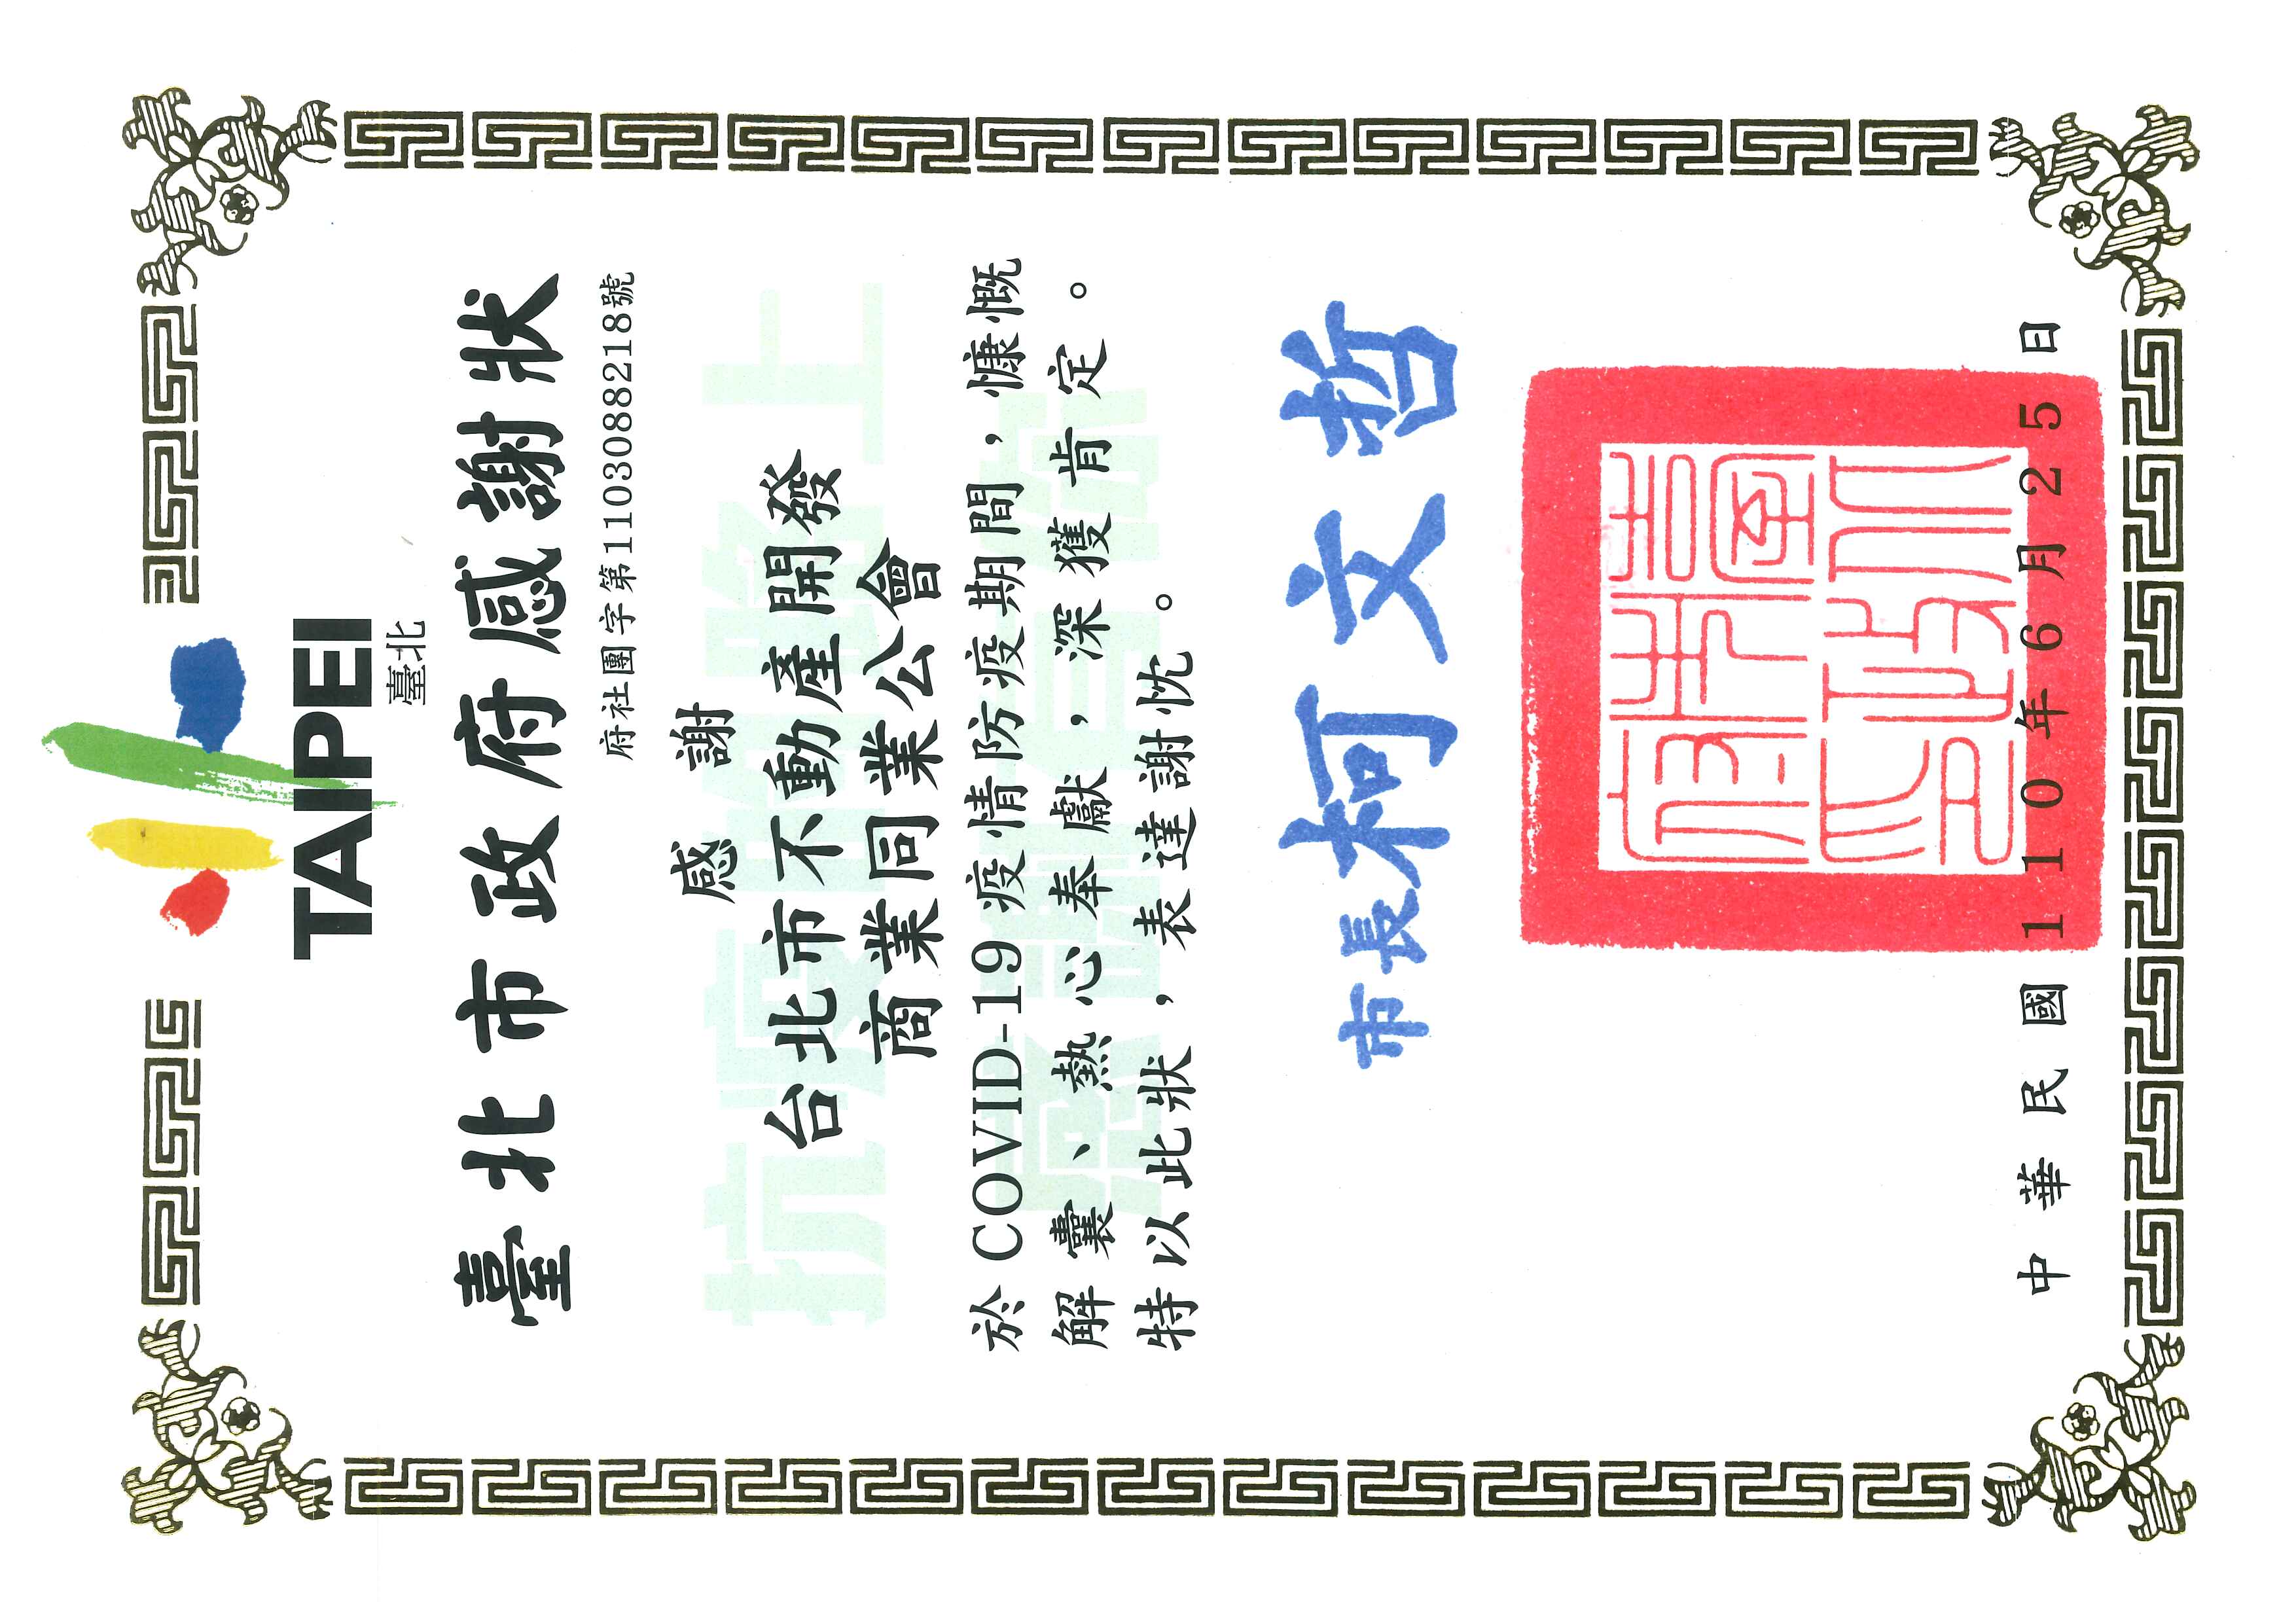 TAIPEI
臺北
臺北市政府感謝狀
府社團字第1103088218號
感謝
台北市不動產開發
商業同業公會
於COVID-19疫情防疫期間，慷慨
解囊、熱心奉獻，深獲肯定。
特以此狀，表達謝忱。
市長柯文哲
中華民國110年6月25日